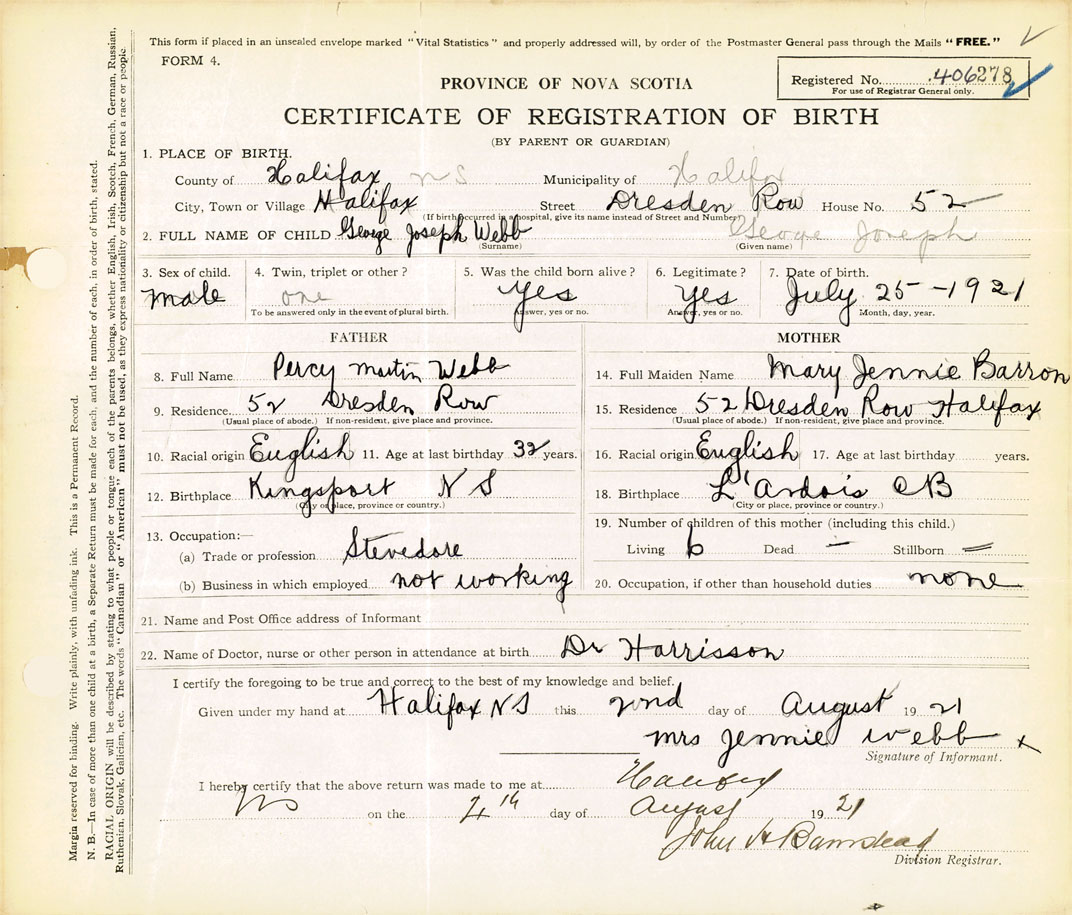 This form if placed in an unsealed envelope marked "Vital Statistics" and properly addressed will, by order of the Postmaster General pass through the Mails "FREE."
FORM 4.
Registered No. 406278
For use of Registrar General only.
PROVINCE OF NOVA SCOTIA
CERTIFICATE OF REGISTRATION OF BIRTH
(BY PARENT OR GUARDIAN)
1. PLACE OF BIRTH.
County of Halifax NS Municipality of Halifax
City, Town or Village Halifax Street Dresden Row House No. 52
(If birth occurred in a hospital, give its name instead of Street and Number)
2. FULL NAME OF CHILD George Joseph Webb George Joseph
(Surname) (Given name)
3. Sex of child. 4. Twin, triplet or other? 5. Was the child born alive? 6. Legitimate? 7. Date of birth.
male one Yes Yes July 25-1921
To be answered only in the event of plural birth. Answer, yes or no. Answer, yes or no. Month, day, year.
FATHER
8. Full Name Percy Martin Webb
9. Residence 52 Dresden Row
(Usual place of abode.) If non-resident, give place and province.
10. Racial origin English 11. Age at last birthday 32 years.
12. Birthplace Kingsport NS
(City or place, province or country.)
13. Occupation:—
(a) Trade or profession Stevedore
(b) Business in which employed not working
MOTHER
14. Full Maiden Name Mary Jennie Barron
15. Residence 52 Dresden Row Halifax
(Usual place of abode.) If non-resident, give place and province.
16. Racial origin English 17. Age at last birthday years.
18. Birthplace L'Ardois CB
(City or place, province or country.)
19. Number of children of this mother (including this child.)
Living 6 Dead — Stillborn =
20. Occupation, if other than household duties none
21. Name and Post Office address of Informant
22. Name of Doctor, nurse or other person in attendance at birth Dr Harrisson
I certify the foregoing to be true and correct to the best of my knowledge and belief.
Given under my hand at Halifax NS this 2nd day of August 1921
Mrs Jennie Webb x
Signature of Informant.
I hereby certify that the above return was made to me at Halifax
NS on the 4th day of August 1921
John H Barnstead
Division Registrar.
Margin reserved for binding. Write plainly, with unfading ink. This is a Permanent Record.
N. B.—In case of more than one child at a birth, a Separate Return must be made for each, and the number of each, in order of birth, stated.
RACIAL ORIGIN will be described by stating to what people or tongue each of the parents belongs, whether English, Irish, Scotch, French, German, Russian,
Ruthenian, Slovak, Galician, etc. The words "Canadian" or "American" must not be used, as they express nationality or citizenship but not a race or people.